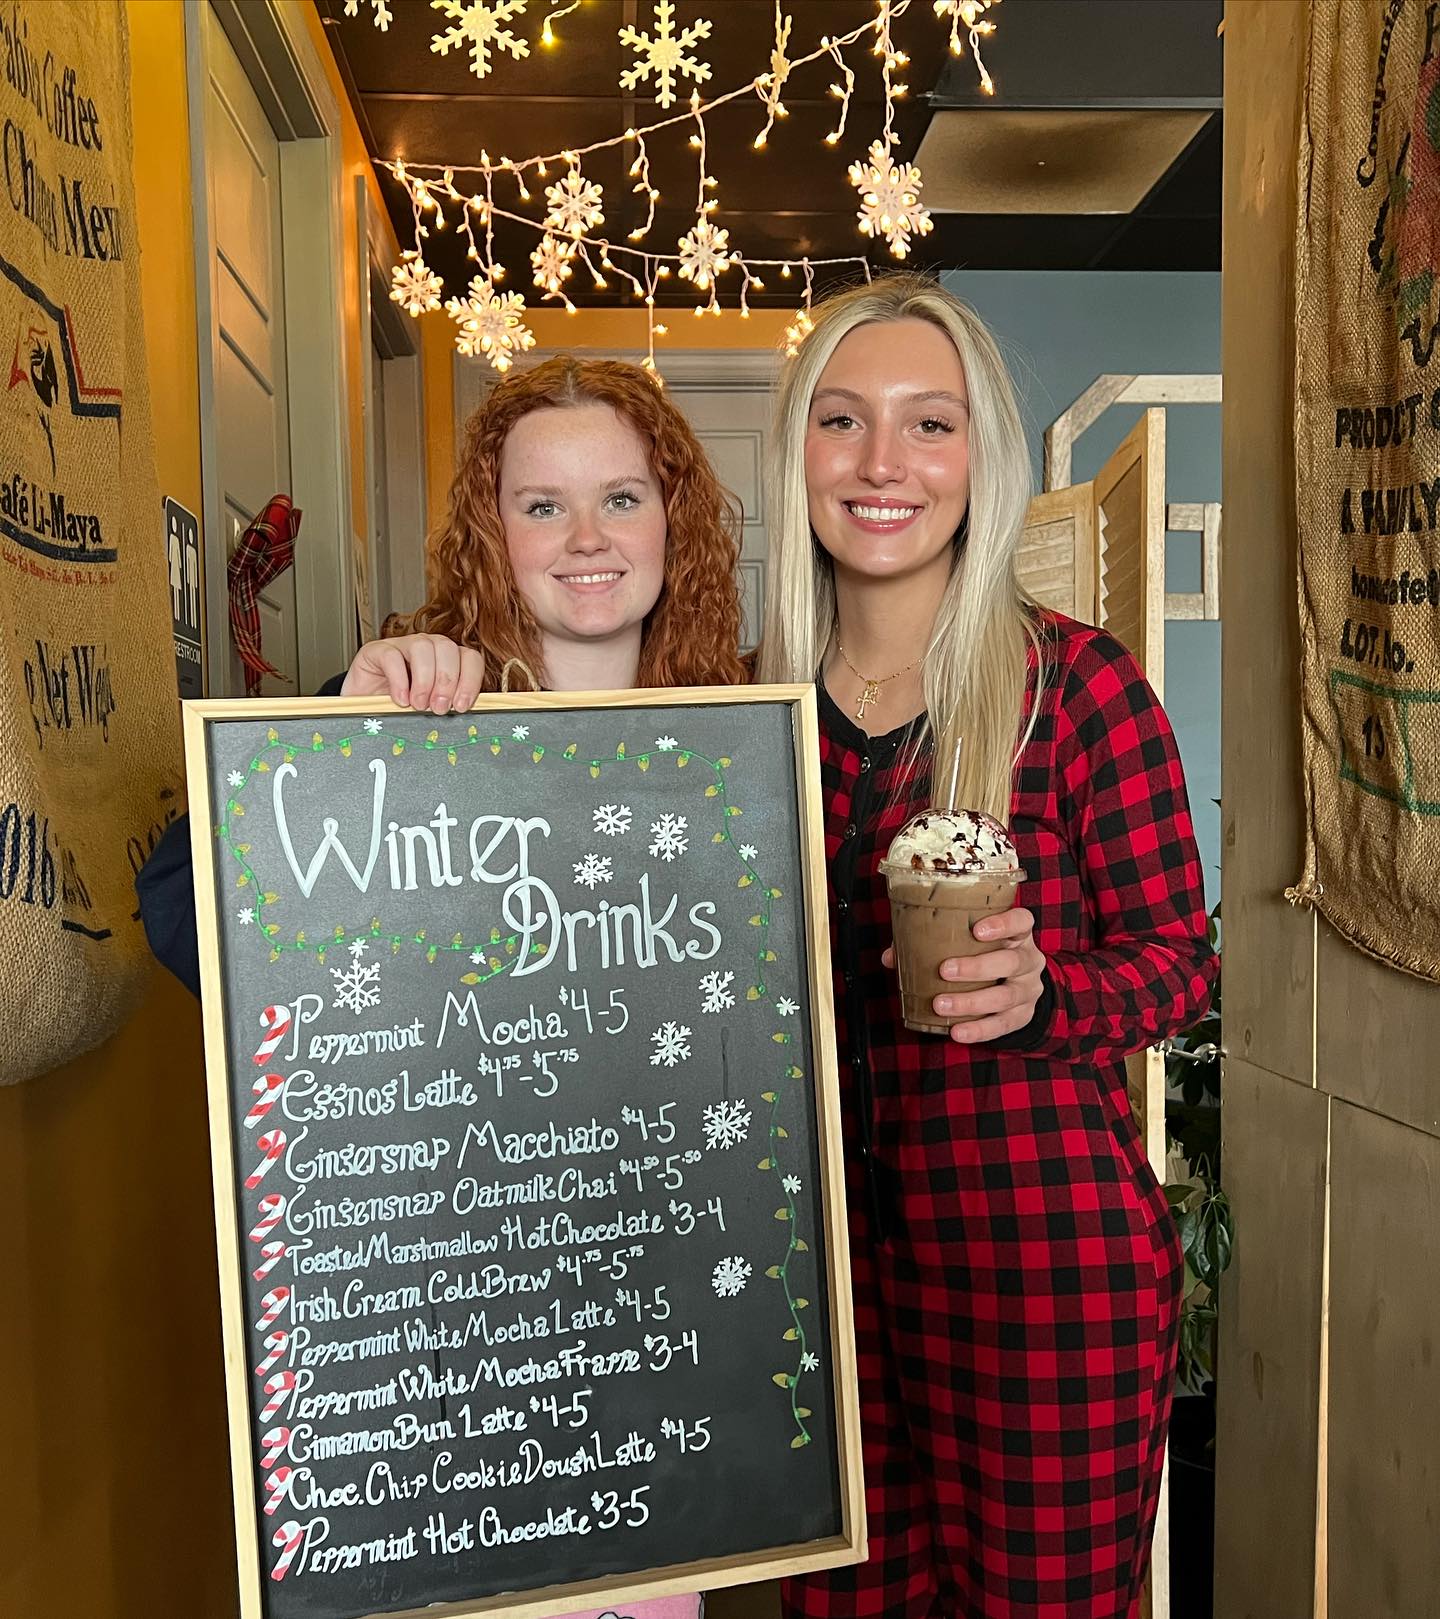 Coffee
Chiapas Mex
Café Li-Maya
Net
RESTROOM
Winter
Drinks
Peppermint Mocha $4-5
Eggnog Latte $4.75-$5.75
Gingersnap Macchiato $4-5
Gingersnap Oatmilk Chai $4.50-5.50
Toasted Marshmallow Hot Chocolate $3-4
Irish Cream Cold Brew $4.75-5.75
Peppermint White Mocha Latte $4-5
Peppermint White Mocha Frappe $3-4
Cinnamon Bun Latte $4-5
Choc. Chip Cookie Dough Latte $4-5
Peppermint Hot Chocolate $3-5
PRODUCT
A FAMILY
LOT. No.
13